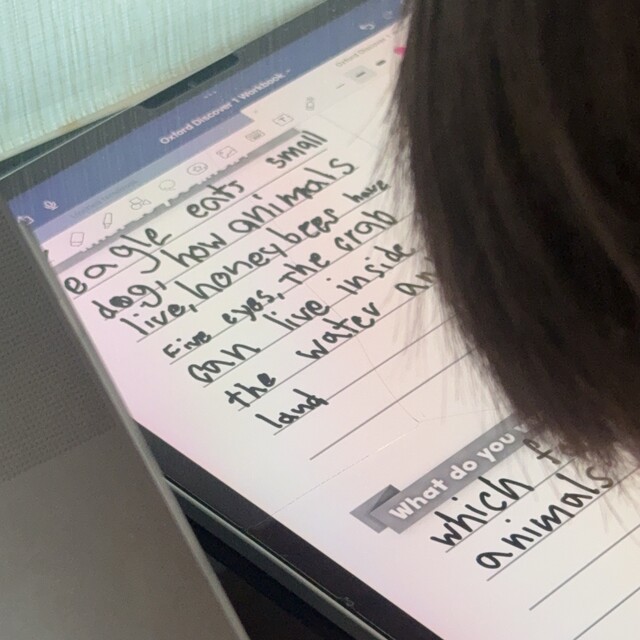 Oxford Discover 1 Workbook
eagle eats small
dog, how animals
live, honey bees have
five eyes, the crab
can live inside
the water an
land
What do you
which
animals